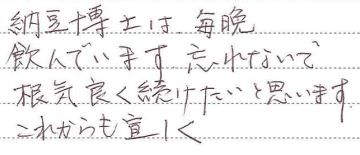 納豆博士は、毎晩
飲んでいます。忘れないで
根気良く続けたいと思います。
これからも宜しく